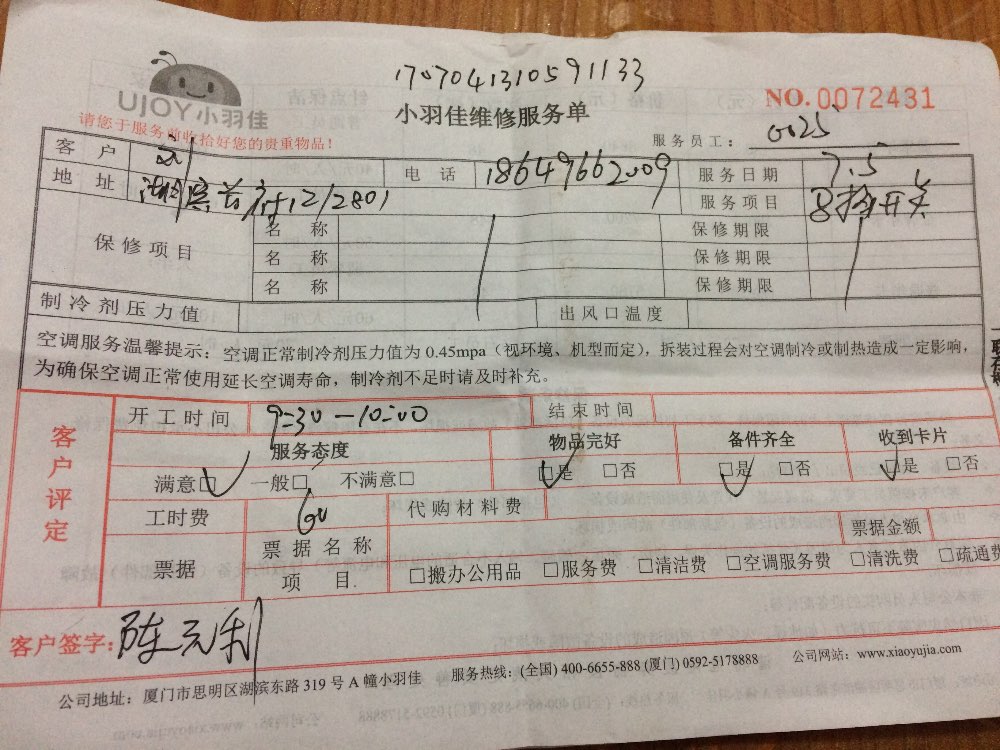 1707041310591133
UJOY小羽佳
小羽佳维修服务单
NO.0072431
请您于服务前收拾好您的贵重物品!
服务员工: 0025
客户 电话 18649662009 服务日期 7.5
地址 12/2801 服务项目 开关
保修项目 名称 保修期限
名称 保修期限
名称 保修期限
制冷剂压力值 出风口温度
空调服务温馨提示:空调正常制冷剂压力值为 0.45mpa(视环境、机型而定),拆装过程会对空调制冷或制热造成一定影响,
为确保空调正常使用延长空调寿命,制冷剂不足时请及时补充。
客户评定
开工时间 9=30-10=00 结束时间
服务态度 物品完好 备件齐全 收到卡片
满意□ 一般□ 不满意□ □是 □否 □是 □否 □是 □否
工时费 60 代购材料费
票据 票据名称 票据金额
项目 □搬办公用品 □服务费 □清洁费 □空调服务费 □清洗费 □疏通费
客户签字: 陈元利
公司地址:厦门市思明区湖滨东路 319 号 A 幢小羽佳 服务热线:(全国) 400-6655-888 (厦门) 0592-5178888 公司网站:www.xiaoyujia.com